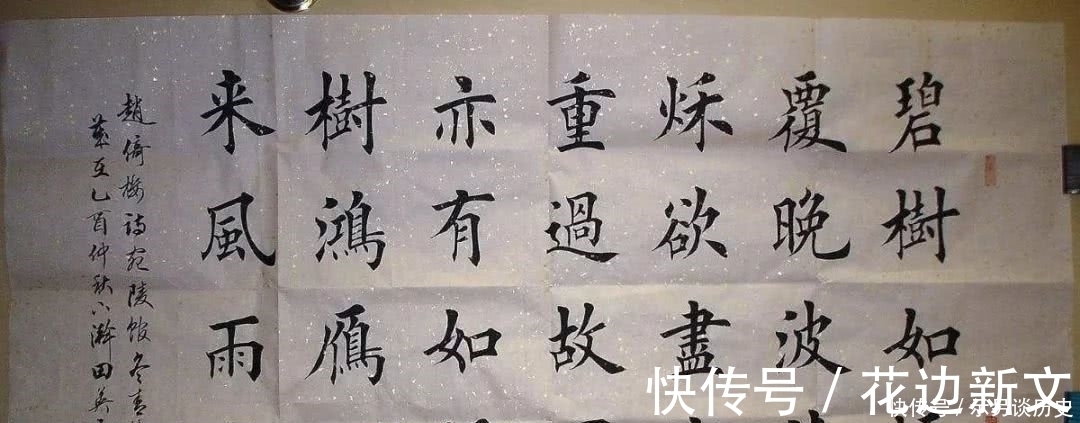 碧樹如
覆晚波
秋欲盡
重過故
亦有如
樹鴻鴈
来風雨
趙倚樓詩宛陵館冬青
歲在乙酉仲秋下澣田英
快传号 / 花边新文
快传号 / 谈历史